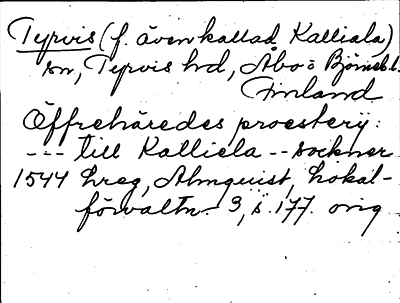 Tyrvis (f. även kallad Kalliala)
sn, Tyrvis hd, Åbo o Björneb. l.
Finland
Öffrehäredes proesterij:
--- till Kalliela -- sockner
1544 hreg, Almquist, Lokal-
förvaltn. 3, s. 177. orig